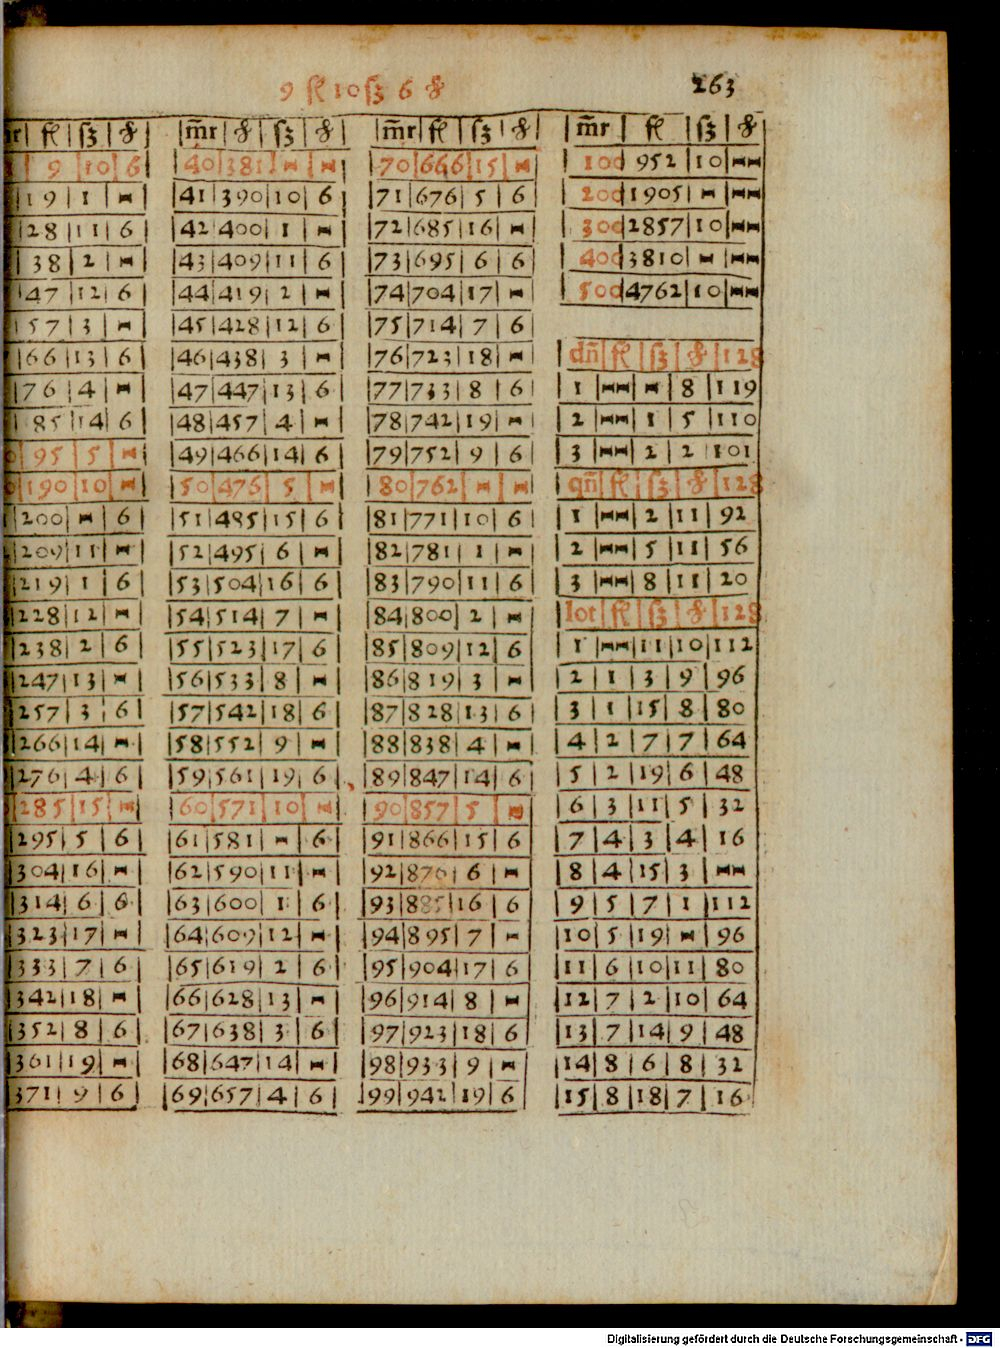 9 fl 10 ß 6 ₰ 263
fl | ß | ₰ | m̄r | ₰ | ß | ₰ | m̄r | fl | ß | ₰ | m̄r | fl | ß | ₰
9 | 10 | 6 | 40 | 381 | – | – | 70 | 666 | 15 | – | 100 | 952 | 10 | –
19 | 1 | – | 41 | 390 | 10 | 6 | 71 | 676 | 5 | 6 | 200 | 1905 | – | –
28 | 11 | 6 | 42 | 400 | 1 | – | 72 | 685 | 16 | – | 300 | 2857 | 10 | –
38 | 2 | – | 43 | 409 | 11 | 6 | 73 | 695 | 6 | 6 | 400 | 3810 | – | –
47 | 12 | 6 | 44 | 419 | 2 | – | 74 | 704 | 17 | – | 500 | 4762 | 10 | –
57 | 3 | – | 45 | 428 | 12 | 6 | 75 | 714 | 7 | 6
66 | 13 | 6 | 46 | 438 | 3 | – | 76 | 723 | 18 | – | dn̄ | fl | ß | ₰ | 128
76 | 4 | – | 47 | 447 | 13 | 6 | 77 | 733 | 8 | 6 | 1 | – | – | 8 | 119
85 | 14 | 6 | 48 | 457 | 4 | – | 78 | 742 | 19 | – | 2 | – | 1 | 5 | 110
95 | 5 | – | 49 | 466 | 14 | 6 | 79 | 752 | 9 | 6 | 3 | – | 2 | 2 | 101
190 | 10 | – | 50 | 476 | 5 | – | 80 | 762 | – | – | qn̄ | fl | ß | ₰ | 128
200 | – | 6 | 51 | 485 | 15 | 6 | 81 | 771 | 10 | 6 | 1 | – | 2 | 11 | 92
209 | 11 | – | 52 | 495 | 6 | – | 82 | 781 | 1 | – | 2 | – | 5 | 11 | 56
219 | 1 | 6 | 53 | 504 | 16 | 6 | 83 | 790 | 11 | 6 | 3 | – | 8 | 11 | 20
228 | 12 | – | 54 | 514 | 7 | – | 84 | 800 | 2 | – | lot | fl | ß | ₰ | 128
238 | 2 | 6 | 55 | 523 | 17 | 6 | 85 | 809 | 12 | 6 | 1 | – | 11 | 10 | 112
247 | 13 | – | 56 | 533 | 8 | – | 86 | 819 | 3 | – | 2 | 1 | 3 | 9 | 96
257 | 3 | 6 | 57 | 542 | 18 | 6 | 87 | 828 | 13 | 6 | 3 | 1 | 15 | 8 | 80
266 | 14 | – | 58 | 552 | 9 | – | 88 | 838 | 4 | – | 4 | 2 | 7 | 7 | 64
276 | 4 | 6 | 59 | 561 | 19 | 6 | 89 | 847 | 14 | 6 | 5 | 2 | 19 | 6 | 48
285 | 15 | – | 60 | 571 | 10 | – | 90 | 857 | 5 | – | 6 | 3 | 11 | 5 | 32
295 | 5 | 6 | 61 | 581 | – | 6 | 91 | 866 | 15 | 6 | 7 | 4 | 3 | 4 | 16
304 | 16 | – | 62 | 590 | 11 | – | 92 | 876 | 6 | – | 8 | 4 | 15 | 3 | –
314 | 6 | 6 | 63 | 600 | 1 | 6 | 93 | 885 | 16 | 6 | 9 | 5 | 7 | 1 | 112
323 | 17 | – | 64 | 609 | 12 | – | 94 | 895 | 7 | – | 10 | 5 | 19 | – | 96
333 | 7 | 6 | 65 | 619 | 2 | 6 | 95 | 904 | 17 | 6 | 11 | 6 | 10 | 11 | 80
342 | 18 | – | 66 | 628 | 13 | – | 96 | 914 | 8 | – | 12 | 7 | 2 | 10 | 64
352 | 8 | 6 | 67 | 638 | 3 | 6 | 97 | 923 | 18 | 6 | 13 | 7 | 14 | 9 | 48
361 | 19 | – | 68 | 647 | 14 | – | 98 | 933 | 9 | – | 14 | 8 | 6 | 8 | 32
371 | 9 | 6 | 69 | 657 | 4 | 6 | 99 | 942 | 19 | 6 | 15 | 8 | 18 | 7 | 16
Digitalisierung gefördert durch die Deutsche Forschungsgemeinschaft - DFG